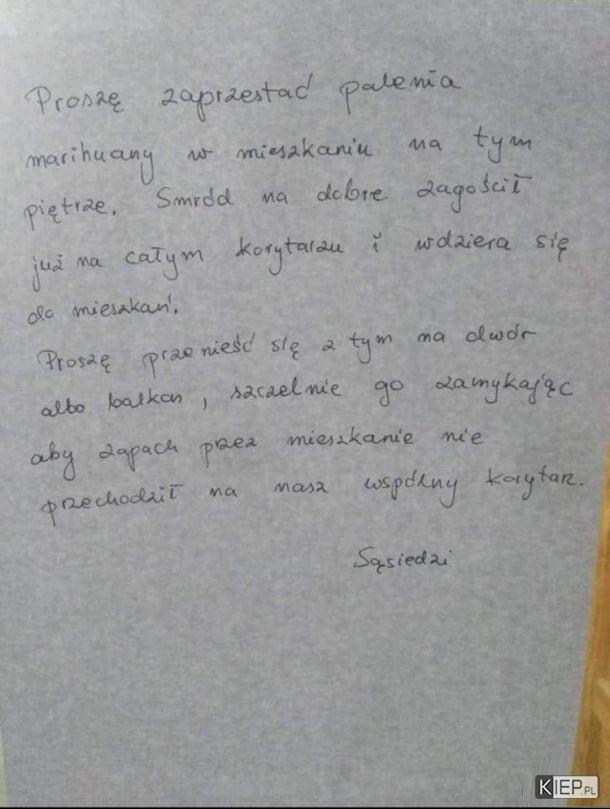 Proszę zaprzestać palenia
marihuany w mieszkaniu na tym
piętrze. Smród na dobre zagościł
już na całym korytarzu i wdziera się
do mieszkań.
Proszę przenieść się z tym na dwór
albo balkon, szczelnie go zamykając
aby zapach przez mieszkanie nie
przechodził na nasz wspólny korytarz.
Sąsiedzi
KIEP.PL